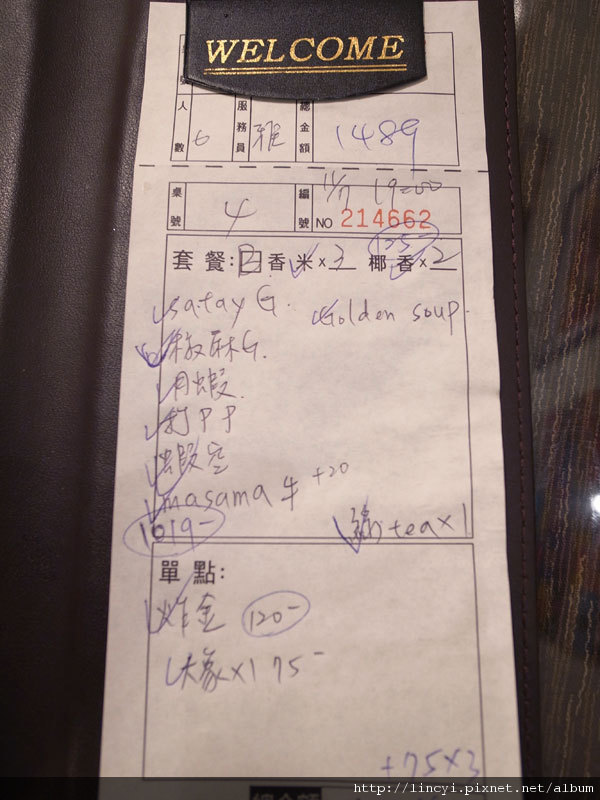 WELCOME
人數 6 服務員 雅 總金額 1489
11/17 19=00
桌號 4 編號 NO 214662
125-
套餐: 白香米×3 椰香×2
satay G. Golden soup.
椒麻G.
月蝦.
打PP
蝦空
masama 牛 +20
1019-
綠tea×1
單點:
炸金 120-
大象×1 75-
+75×3
http://lincyi.pixnet.net/album